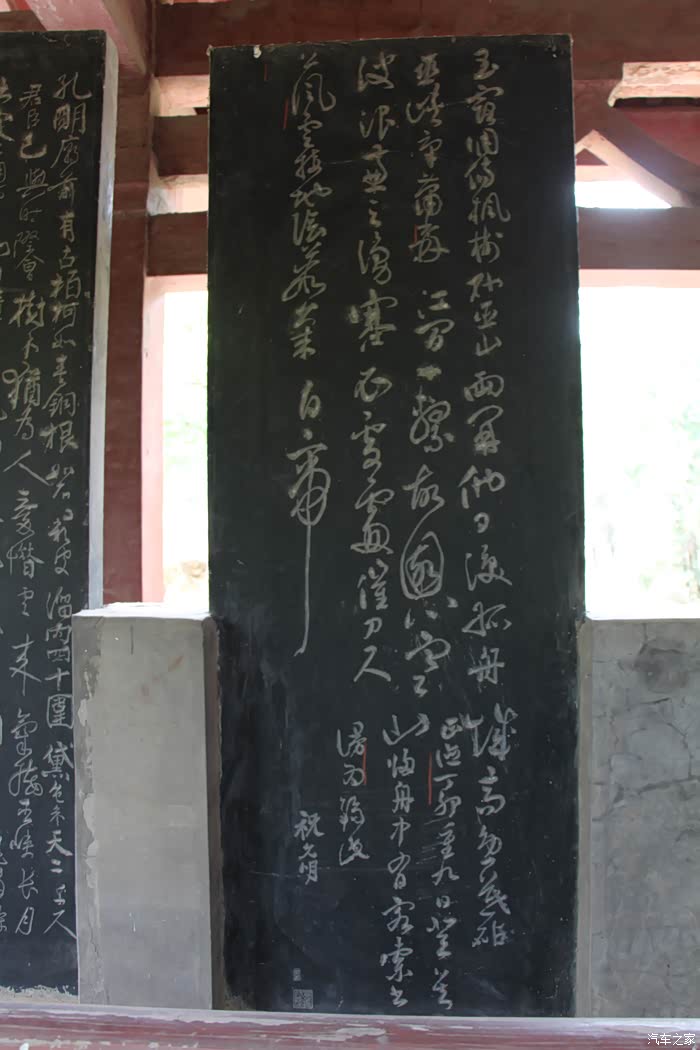 玉露凋傷楓樹林巫山
巫峽氣蕭森江間
波浪兼天湧塞
風雲接地陰叢菊
兩開他日淚孤舟
一繫故園心寒
衣處處催刀尺
白帝
城高急暮砧
正德丁卯重九日登
山歸舟中有客索書
漫為錄此
祝允明
孔明廟前有古柏柯如青銅根如石霜皮溜雨四十圍黛色參天二千尺
君臣已與時際會樹木猶為人愛惜雲來氣接巫峽長月
汽车之家